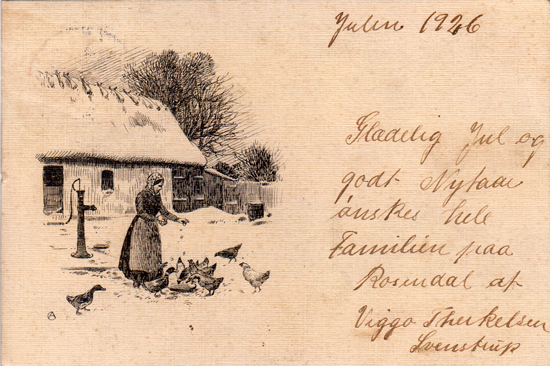 Julen 1926
Glædelig Jul og
godt Nytaar
ønskes hele
Familien paa
Rosendal af
Viggo Therkelsen
Svenstrup